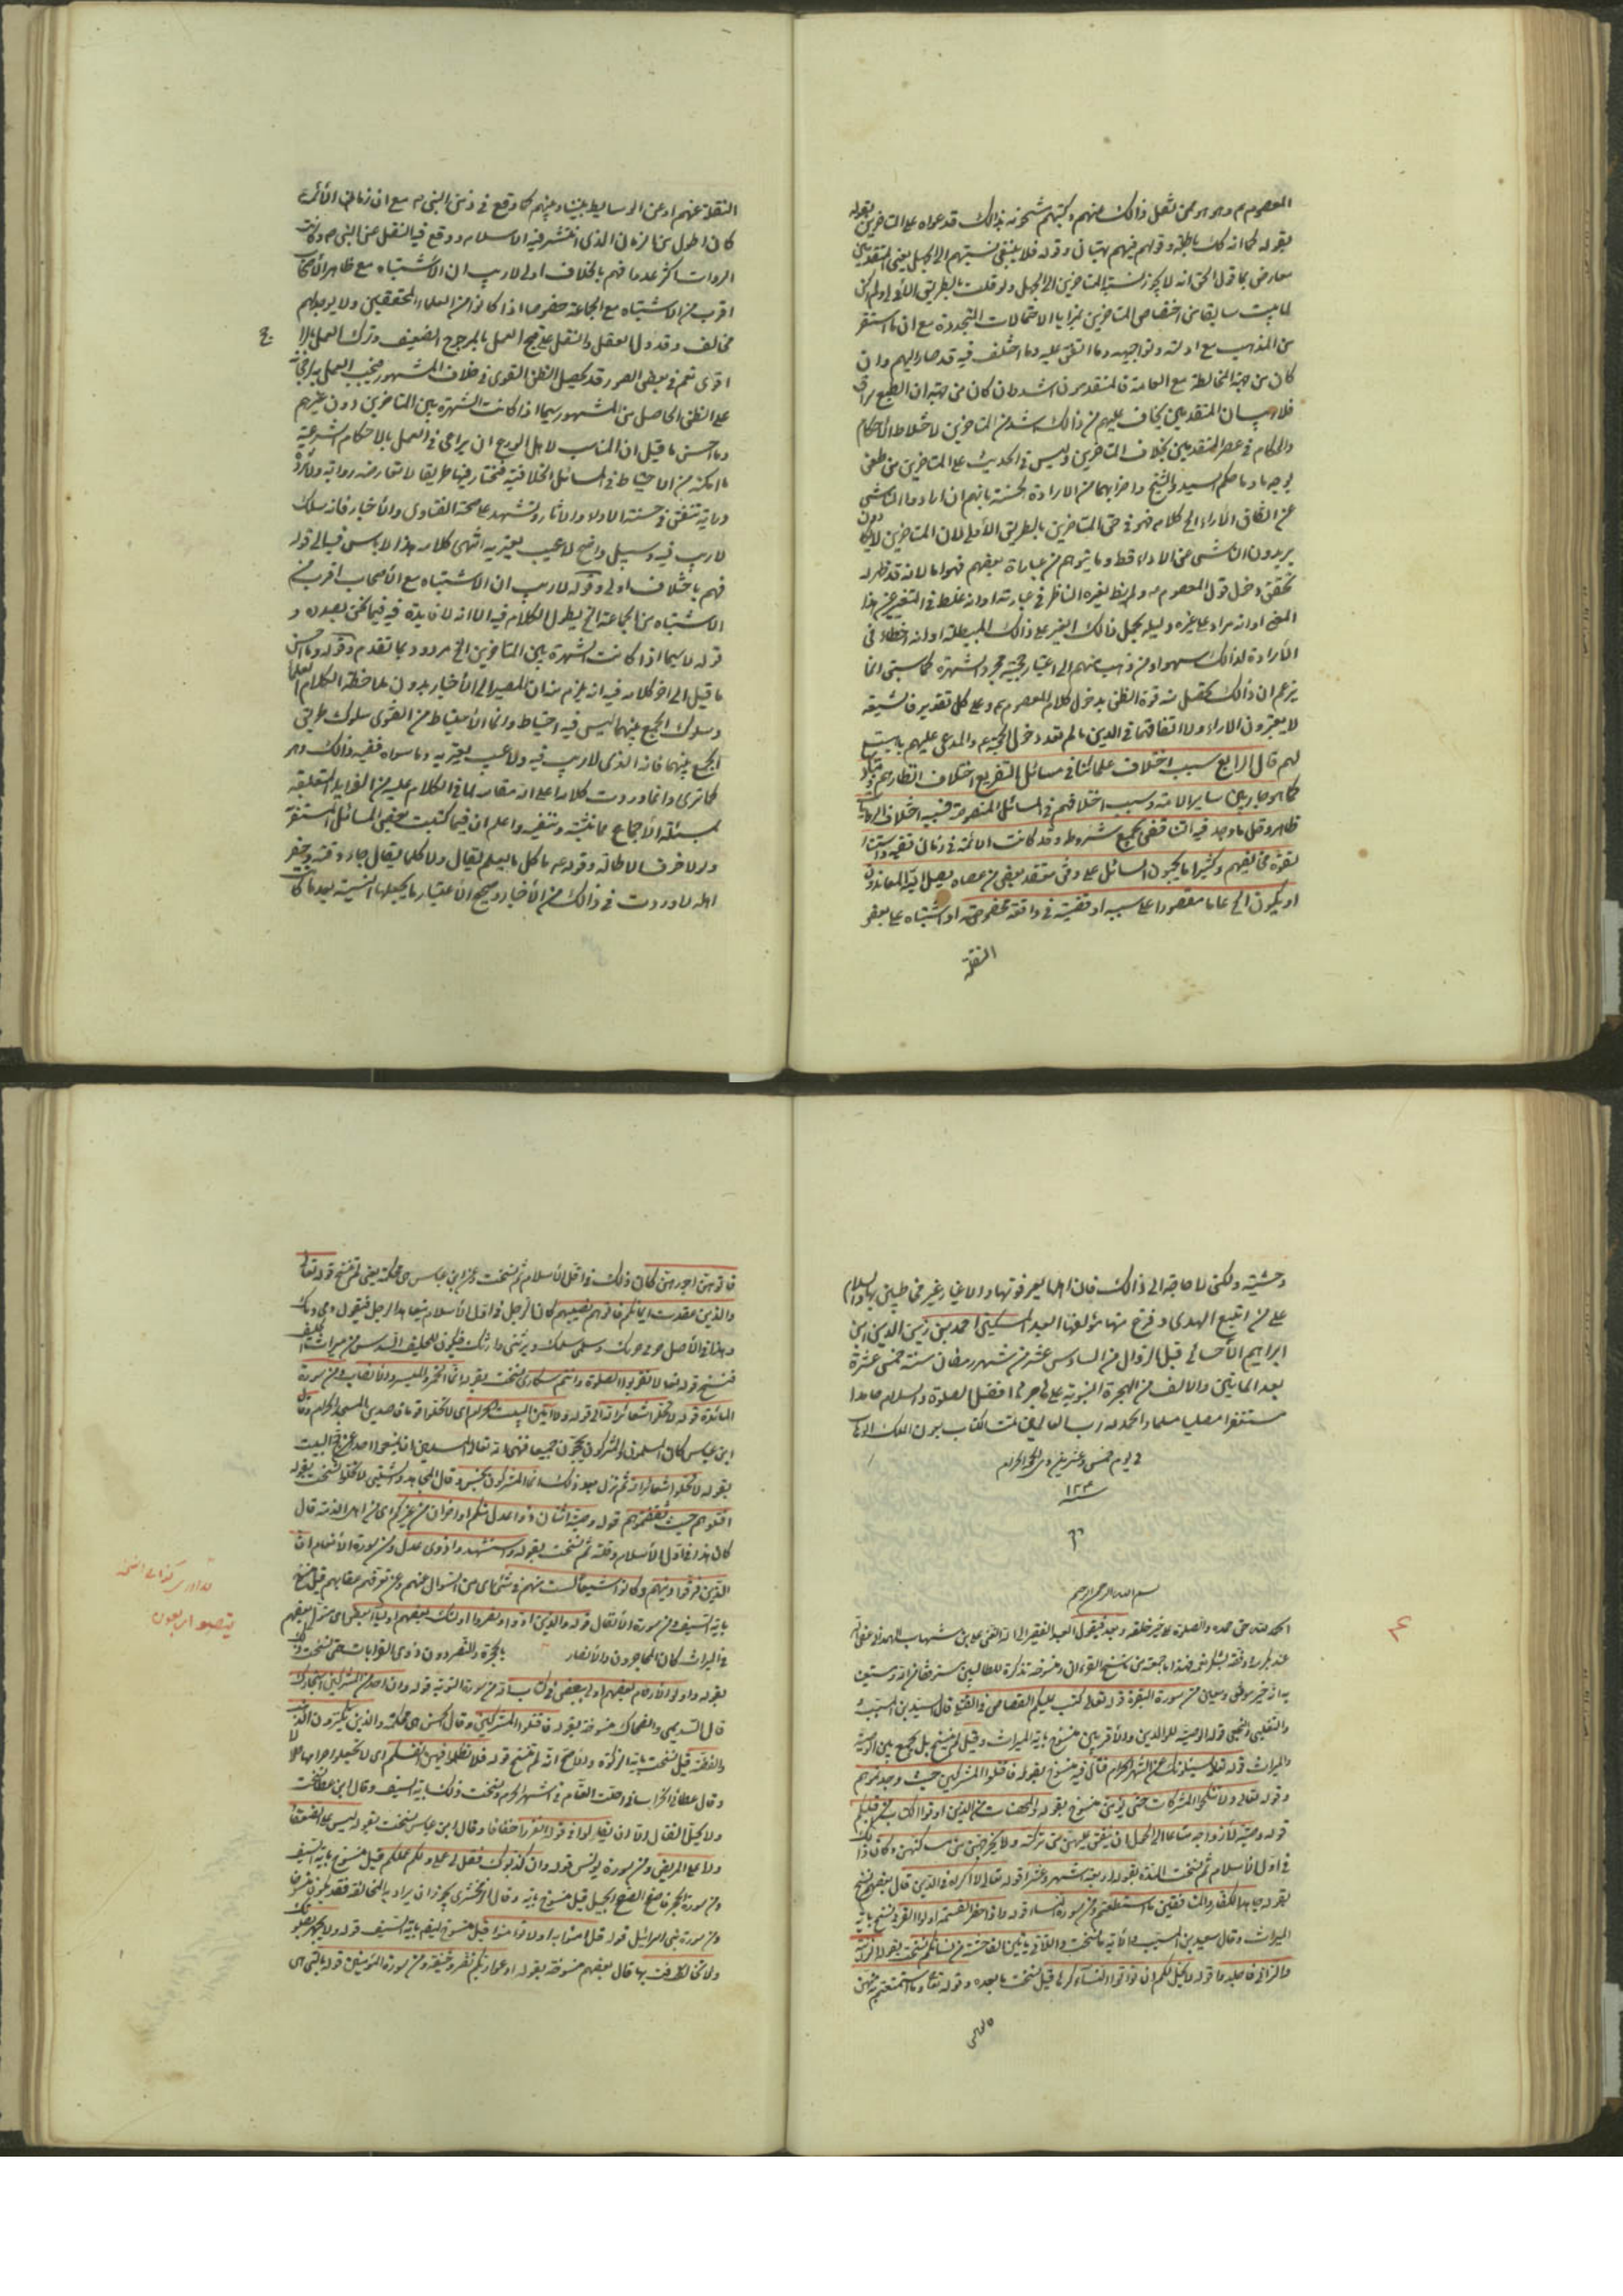 المعصوم م وهو هو ممن نقل ذالك منهم وكتبهم مشحونة بذالك قد دعواه على المتاخرين بقوله
بقوله كما انه كك باطلة وقولهم فيهم بهتان وقوله فلا ينبغي نسبتهم الى الجهل يعني المتقدمين
معارض بما قول الحق انه لا يجوز نسبة المتاخرين الى الجهل ولو قلت بالطريق الاولى لم اكن
لما بينت سابقا من اختصاص المتاخرين بمزايا الاحتمالات المتجددة مع ان ما استقر
من المذهب مع ادلته وتواجيهه وما اتفق عليه وما اختلف فيه قد صار اليهم وان
كان من جهة المخالطة مع العامة فالمتقدمون اشد وان كان من جهة ان الطبع سراق
فلا ريب ان المتقدمين يخاف عليهم من ذالك اشد من المتاخرين لاختلاط الاحكام
والحكام في عصر المتقدمين بخلاف المتاخرين وليس في الحديث على المتاخرين من طعن
بوجه ما وما حكم السيد والشيخ واضرابهما من الارادة الحسنة بانهم ان ارادوا الناشي
عن اتفاق الآراء الخ كلامه فهو في حق المتاخرين بالطريق الأولى لان المتاخرين لا يكادون
يريدون الناشي من الآراء قط وما يتوهم من عبارة بعضهم فهو اما لانه قد ظهر له
تحقق دخول قول المعصوم م ولم يظهر لغيره الناظر في عبارته او انه غلط في التعبير عن هذا
المعنى او انه مراد على غيره وليله يحمل ذالك الغير على ذالك المبطلة او انه اخطاء في
الأرادة لذالك سهوا ومن ذهب منهم الى اعتبار حجية مجرد الشهرة كما سبق انما
يزعم ان ذالك يحصل منه قوة الظن بدخول كلام المعصوم م وعلى كل تقدير فالشيعة
لا يعتبرون الاراء ولا اتفاقها في الدين ما لم تفد دخول الحجة م والمدعي عليهم بالبيت
لهم قال الرابع سبب اختلاف علمائنا في مسائل التفريع اختلاف انظارهم ومباد
كما هو جار بين ساير الامة وسبب اختلافهم في المسائل المنصوصة فسببه اختلاف الروايات
ظاهرا وقل ما وجد فيه التناقض بجميع شروطه وقد كانت الائمة في زمان تقية واستتار
لقوة مخالفيهم وكثيرا ما يجيبون السائل على وفق معتقد بعض من عصاه يصل اليه المعاندون
او يكون الخ عاما مقصورا على سببه او قضية في واقعة مخصوصة او اشتباه على بعض
النقلة
النقلة عنهم او عن الوسايط بيننا وبينهم كما وقع في زمن النبي ص مع ان زمان الأئمة
كان اطول من الزمان الذي انتشر فيه الاسلام ووقع فيه النقل عن النبي ص وكانت
الروات اكثر عددا فهم بالخلاف اولى لا ريب ان الاشتباه مع ظاهر الأصحاب
اقرب من الاشتباه مع الجماعة خصوصا اذا كانوا من العلماء المحققين ولا يوجد لهم
مخالف وقد دل العقل والنقل على قبح العمل بالمرجوح الضعيف وترك العمل بالاقوى
اقوى نعم في بعض الصور قد يحصل الظن القوي في خلاف المشهور فيجب العمل به لرجحانه
على الظن الحاصل من المشهور سيما اذا كانت الشهرة بين المتاخرين دون غيرهم
وما احسن ما قيل ان المناسب لاهل الورع ان يراعى في العمل بالاحكام الشرعية
ما امكنه من الاحتياط في المسائل الخلافية فتختار فيها طريقا لا تعارضه رواية ولا يرده
دراية تتفق في حسنه الادلة والآثار وتشهد على صحة الفتاوى والأخبار فانه سلك
لا ريب فيه وسبيل واضح لا عيب يعتريه انتهى كلامه هذا لا باس فيه الى قوله
فهم باختلاف اولى وقوله لا ريب ان الاشتباه مع الأصحاب اقرب من
الاشتباه من الجماعة الخ يطول الكلام فيه الا انه لا فايدة فيه فيما نحن بصدده و
قوله لا سيما اذا كانت الشهرة بين المتاخرين الخ مردود بما تقدم وقوله وما احسن
ما قيل الى اخر كلامه فيه انه يلزم منه ان المصير الى الأخبار بدون ملاحظة الكلام العلماء
وسلوك الجمع بينهما ليس فيه احتياط وانما الأحتياط من التقوى سلوك طريق
الجمع بينهما فانه الذي لا ريب فيه ولا عيب يعتريه وما سواه ففيه ذالك وهو
كما ترى وانما اوردت كلامه على انه مقام لما في الكلام عليه من الفوايد المتعلقة
بمسئلة الأجماع مما نثبته وننفيه واعلم ان فيما كتبت بعض المسائل المستغنى
ولولا خوف الاطالة وقوله م ما كل ما يعلم يقال ولا كلما يقال جاء وقته وحضر
اهله لاوردت في ذالك من الأخبار وصحيح الاعتبار ما يجعلها النسية بعد ما كانت
وحشية ولكن لا حاجة الى ذالك فان اهلها يعرفونها والاغيار غير مخاطبين بها والسلام
على من اتبع الهدى وفرغ منها مؤلفها العبد المسكين احمد بن زين الدين ابن
ابراهيم الأحسائي قبل الزوال من السادس عشر من شهر رمضان سنة خمس عشرة
بعد المايتين والالف من الهجرة النبوية على مهاجرها افضل الصلوة والسلام حامدا
مستغفرا مصليا مسلما والحمد لله رب العالمين تمت الكتاب بعون الملك الوهاب
في يوم خمس وعشرين من ذي الحجة الحرام
سنة ١٢٣
م
بسم الله الرحمن الرحيم
الحمد لله حق حمده والصلوة على خير خلقه وبعد فيقول العبد الفقير الى الله الغني علي بن شهاب الهمداني عفي الله
عنه بكرمه ووفقه لشكر نعمه فهذا ما جمعته من ناسخ القرءان ومنسوخه تذكرة للطالبين مستوفقا من الله ومستعينا
به انه خير موفق ومعين من سورة البقرة قوله تعالى كتب عليكم القصاص في القتلى قال السيد بن المسيب
والثعلبي والنخعي قوله الوصية للوالدين والأقربين منسوخ باية الميراث وقيل لم ينسخ بل يجمع بين الوصية
والميراث قوله تعالى يسئلونك عن الشهر الحرام قتال فيه منسوخ بقوله فاقتلوا المشركين حيث وجدتموهم
وقوله تعالى ولا تنكحوا المشركات حتى يؤمن منسوخ بقوله والمحصنات من الذين اوتوا الكتاب من قبلكم
قوله وصية لازواجهم متاعا الى الحول ان ينفق عليهن من تركته ولا يخرجن من مسكنهن وكان ذالك
في اول الأسلام ثم نسخت المدة بقوله اربعة اشهر وعشرا قوله تعالى لا اكراه في الدين قال بعضهم نسخ
بقوله جاهد الكفار والمنافقين ما استطعتم ومن سورة النساء قوله واذا حضر القسمة اولوا القربى نسخ باية
الميراث وقال سعيد بن المسيب والأية ما نسخت واللاتي ياتين الفاحشة من نسائكم نسخت بقوله الزانية
والزاني فاجلدوا قوله لا يحل لكم ان ترثوا النساء كرها قيل نسخت بما بعده وقوله تعالى وما استمتعتم به منهن
فاتوهن
فاتوهن اجورهن كان ذلك في اول الأسلام ثم نسخت وعن ابن عباس هي محكمة يعني لم تنسخ قوله تعالى
والذين عقدت ايمانكم فاتوهم نصيبهم كان الرجل في اول الأسلام يعاهد الرجل فيقول دمي دمك
وهذا في الأصل حربي حربك وسلمي سلمك وترثني وارثك فيكون للحليف السدس من ميراث الحليف
فنسخ قوله تعالى لا تقربوا الصلوة وانتم سكارى نسخت بقوله انما الخمر والميسر والأنصاب ومن سورة
المائدة قوله لا تحلوا شعائر الله الى قوله ولا امين البيت الحرام اي لا تحلوا قوما قاصدين المسجد الحرام وقال
ابن عباس كان المسلمون والمشركون يحجون جميعا فنهى الله تعالى المسلمين ان يمنعوا احدا عن حج البيت
بقوله لا تحلوا شعائر الله ثم نزل بعد ذلك انما المشركون نجس وقال المجاهد والشعبي لا تحلوا نسخت بقوله
اقتلوهم حيث ثقفتموهم قوله وصية اثنان ذوا عدل منكم او اخران من غيركم اي من اهل الذمة قال
كان هذا في اول الأسلام وقلته ثم نسخت بقوله واستشهدوا ذوي عدل ومن سورة الأنعام ان
الذين فرقوا دينهم وكانوا شيعا لست منهم في شئ اي من السؤال عنهم وعن تفرقهم عقابهم قيل نسخ
باية السيف ومن سورة الأنفال قوله والذين اووا ونصروا اولئك بعضهم اولياء بعض اي يتولى بعضهم
في الميراث كان المهاجرون والأنصار بالهجرة والنصر دون ذوي القرابات حتى نسخت ذلك
بقوله واولوا الأرحام بعضهم اولى ببعض في كتاب الله من سورة التوبة قوله وان احد من المشركين استجارك
قال السدي والضحاك منسوخة بقوله فاقتلوا المشركين وقال الحسن هي محكمة والذين يكنزون الذهب
والفضة قيل نسخت باية الزكوة والأصح انه لم تنسخ قوله فلا تظلموا فيهن انفسكم اي لا تجعلوا حرامها حلالا
وقال عطاء الخراساني احلت القتال في الشهر الحرم ونسخت ذلك باية السيف وقال ابن عطا نسخت
ولا يحل القتال الا ان يقاتلوا في قوله انفروا خفافا وقال ابن عباس نسخت بقوله ليس على الضعفاء
ولا على المرضى ومن سورة يونس قوله وان كذبوك فقل لي عملي ولكم عملكم قيل منسوخ باية السيف
ومن سورة الحجر فاصفح الصفح الجميل قيل منسوخ باية وقال الزمخشري يجوز ان يراد به المخالفة فقد يكون منسوخا
ومن سورة بني اسرائيل قوله قل امنوا به او لا تؤمنوا قيل منسوخ باية السيف قوله ولا تجهر بصلوتك
ولا تخافت بها قال بعضهم منسوخة بقوله ادعوا ربكم تضرعا وخيفة ومن سورة المؤمنين قوله بالتي هي
٤